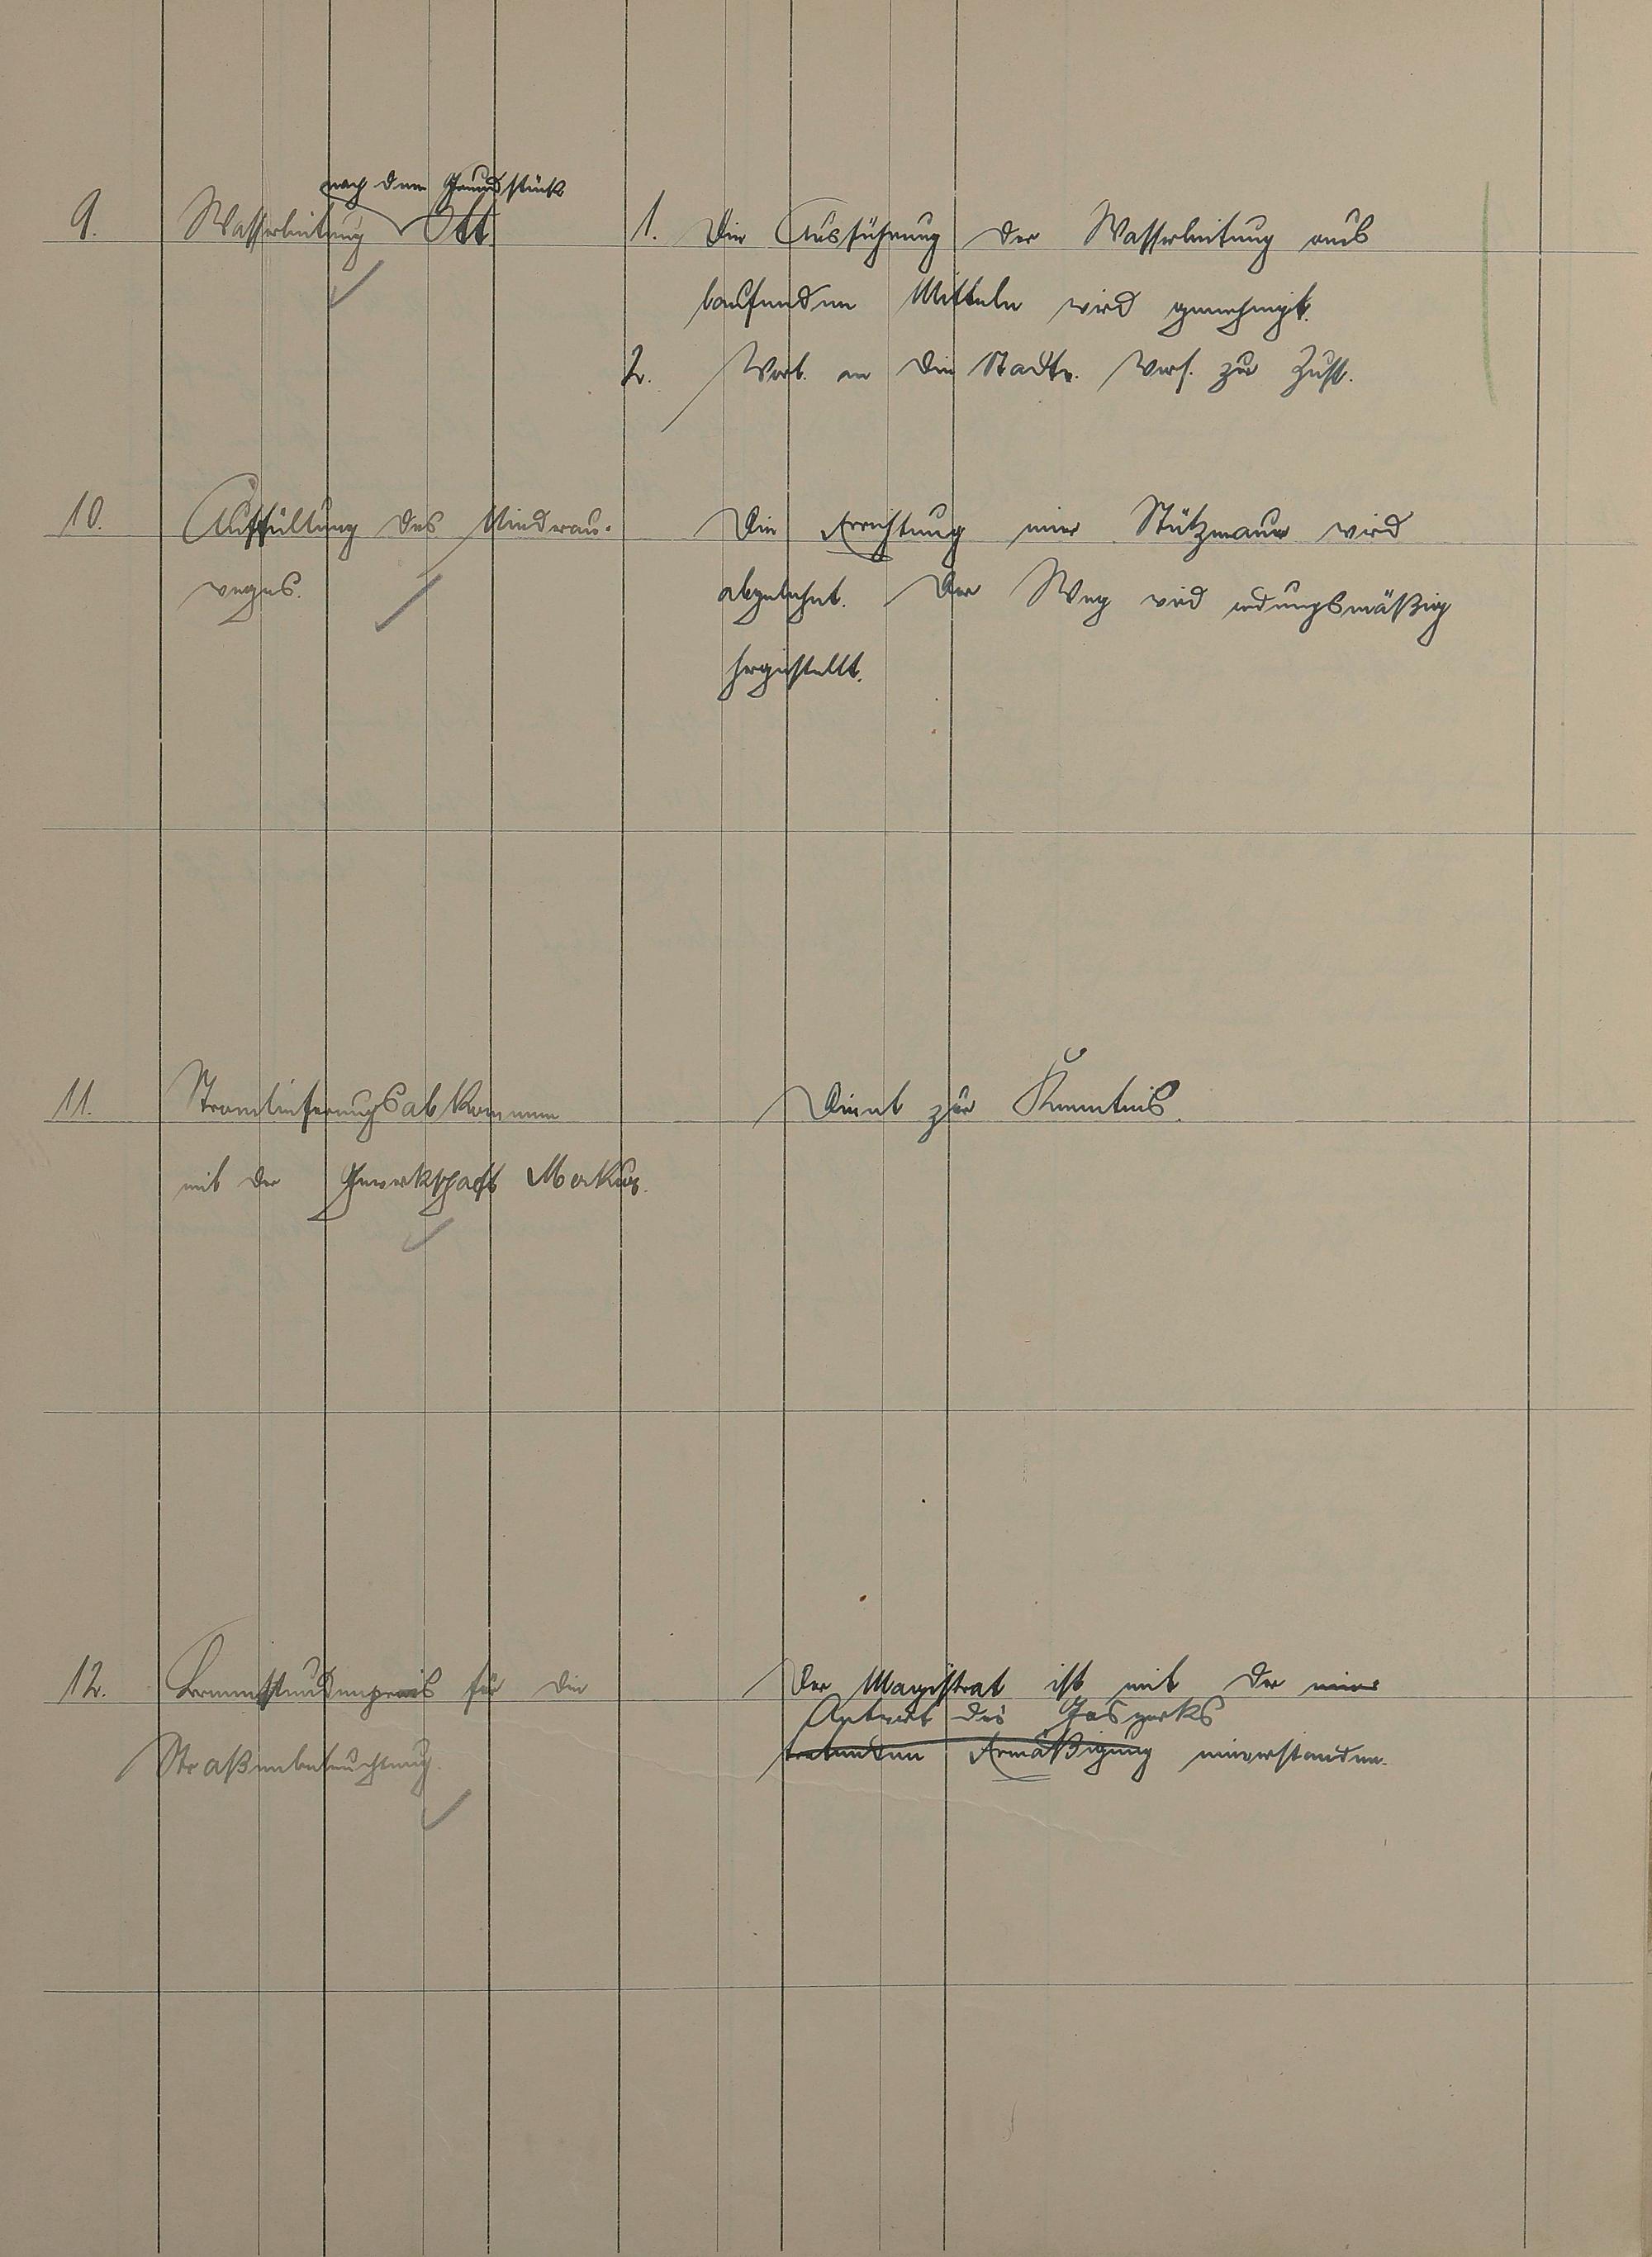 nach dem Grundstück
9. Wasserleitung Ott
1. Die Ausführung der Wasserleitung aus
laufenden Mitteln wird genehmigt.
2. Vorl. an die Stadtv. Vers. zur Zust.
10. Auffüllung des Niederau-
weges.
Die Errichtung einer Stützmauer wird
abgelehnt. Der Weg wird ordnungsmäßig
hergestellt.
11. Stromlieferungsabkommen
mit der Gewerkschaft Merkur.
Dient zur Kenntnis.
12. Brennstundenpreis für die
Straßenbeleuchtung.
Der Magistrat ist mit der eine
Antwort des Gaswerks
tretenden Ermäßigung einverstanden.